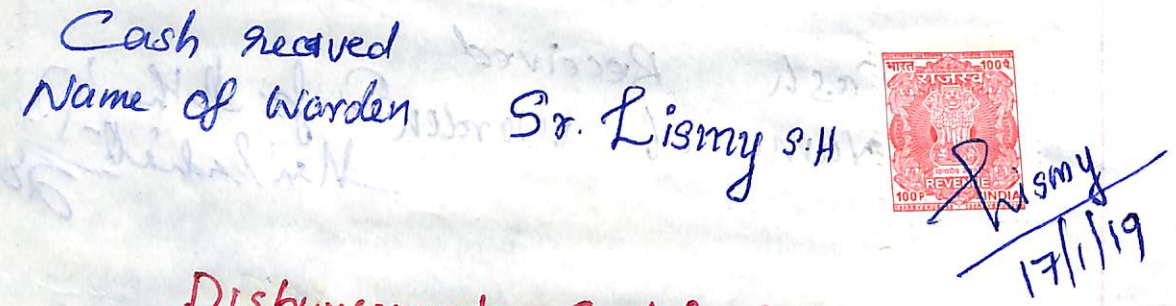 Cash recieved
Name of Warden Sr. Lismy S.H
भारत 100प.
राजस्व
REVENUE
100P. INDIA
Lismy
17/1/19